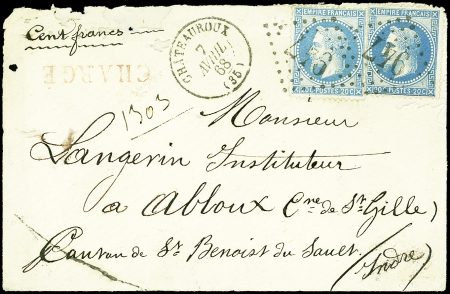 Cent francs
CHARGÉ
CHATEAUROUX
7
AVRIL
68
(35)
EMPIRE FRANÇAIS
EMPIRE FRANÇAIS
POSTES 20C
POSTES 20C
1303
Monsieur
Langerin Instituteur
a Abloux (Cne de St Gille)
Canton de St Benoist du Sault
(Indre)